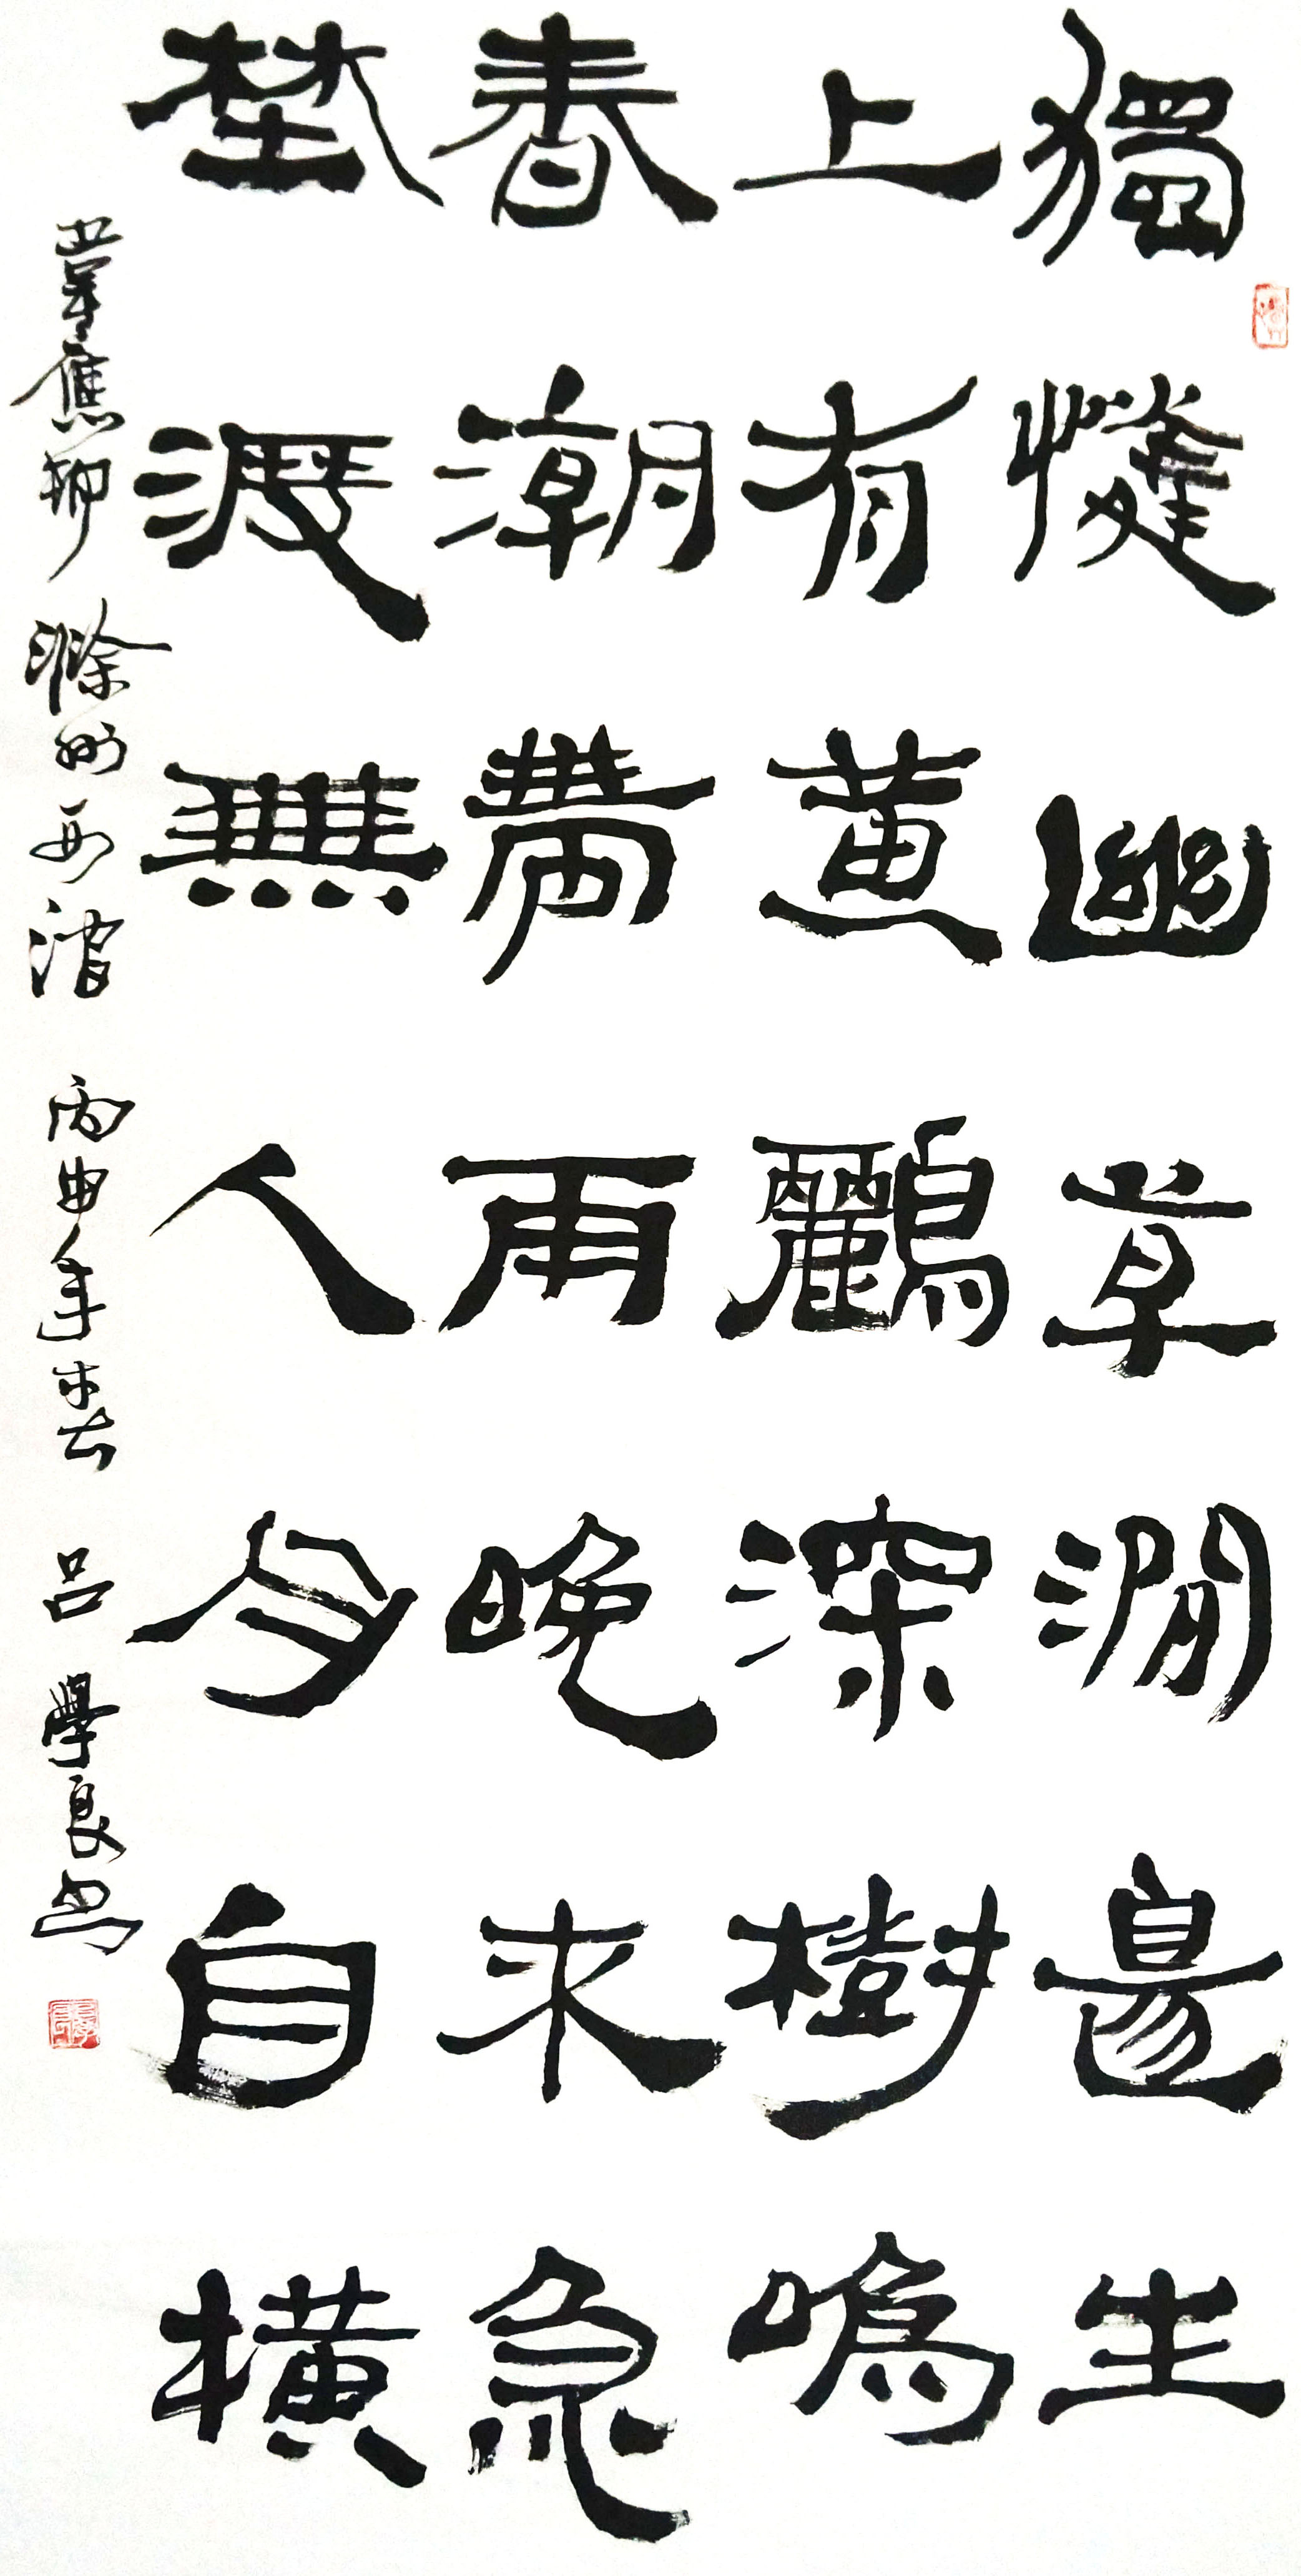 獨憐幽草澗邊生
上有黃鸝深樹鳴
春潮帶雨晚來急
埜渡無人舟自橫
韋應物 滁州西澗 丙申年春 呂學良書